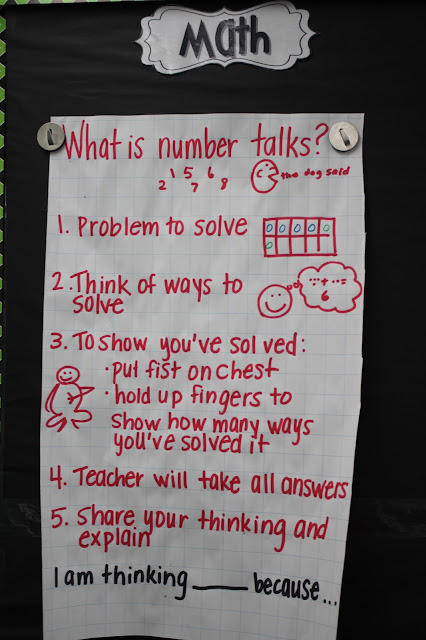 Math
What is number talks?
1 5 6
2 7 8
the dog said
1. Problem to solve
2. Think of ways to
solve
6
3. To show you've solved:
· put fist on chest
· hold up fingers to
show how many ways
you've solved it
4. Teacher will take all answers
5. Share your thinking and
explain
I am thinking ____ because...